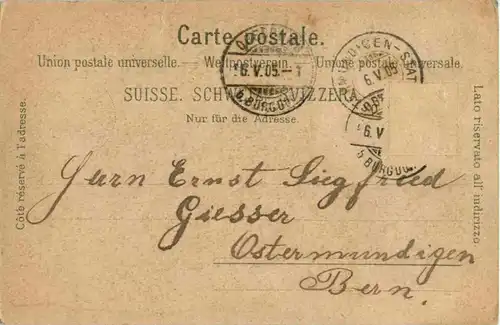 Carte postale.
Union postale universelle. — Weltpostverein. — Unione postale universale.
SUISSE. SCHWEIZ. SVIZZERA.
Nur für die Adresse.
Côté réservé à l'adresse.
Lato riservato all' indirizzo
6.V.05.-1
b. BURGDORF
6.V.05
6.V
b. BURGDORF
Herrn Ernst Siegfried
Giesser
Ostermundigen
Bern.